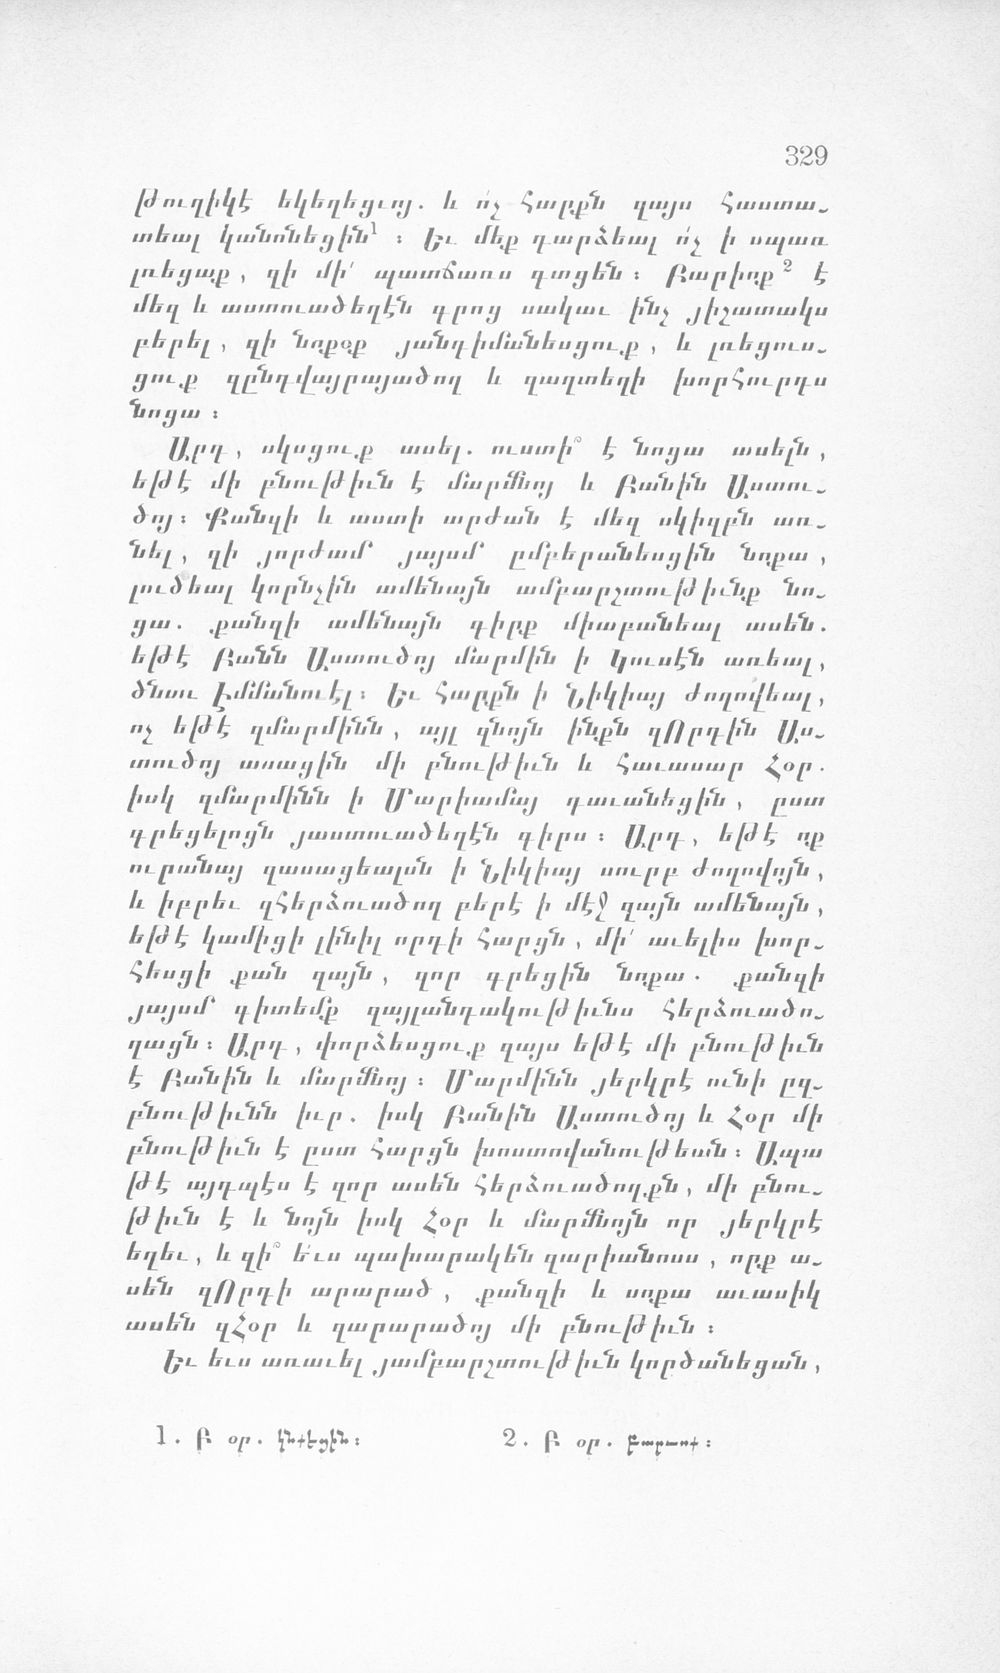 329
թուղիկէ եկեղեցւոյ. և ո՛չ հարքն զայս հաստա֊
տեալ կանոնեցին¹ ։ Եւ մեք դարձեալ ո՛չ ի սպառ
լռեցաք, զի մի՛ պատճառս գտցեն ։ Բարիոք² է
մեզ և աստուածեղէն գրոց սակաւ ինչ յիշատակս
բերել, զի նոքօք յանդիմանեսցուք, և լռեցուս֊
ցուք զընդվայրայածող և զաղտեղի խորհուրդս
նոցա ։
Արդ, սկսցուք ասել. ուստի՞ է նոցա ասելն,
եթէ մի բնութիւն է մարմնոյ և Բանին Աստու֊
ծոյ ։ Քանզի և աստի արժան է մեզ սկիզբն առ֊
նել, զի յորժամ յայսմ ըմբերանեսցին նոքա,
լուծեալ կորնչին ամենայն ամբարշտութիւնք նո֊
ցա. քանզի ամենայն գիրք միաբանեալ ասեն.
եթէ Բանն Աստուծոյ մարմին ի Կուսէն առեալ,
ծնաւ Էմմանուէլ ։ Եւ հարքն ի Նիկիայ ժողովեալ,
ոչ եթէ զմարմինն, այլ զնոյն ինքն զՈրդին Աս֊
տուծոյ ասացին մի բնութիւն և հաւասար Հօր.
իսկ զմարմինն ի Մարիամայ դաւանեցին, ըստ
գրեցելոցն յաստուածեղէն գիրս ։ Արդ, եթէ ոք
ուրանայ զասացեալսն ի Նիկիայ սուրբ ժողովոյն,
և իբրեւ զհերձուածող բերէ ի մէջ զայն ամենայն,
եթէ կամիցի լինիլ որդի հարցն, մի՛ աւելիս խոր֊
հեսցի քան զայն, զոր գրեցին նոքա. քանզի
յայսմ գիտեմք զայլանդակութիւնս հերձուածո֊
ղացն ։ Արդ, փորձեսցուք զայս եթէ մի բնութիւն
է Բանին և մարմնոյ ։ Մարմինն յերկրէ ունի ըզ֊
բնութիւնն իւր. իսկ Բանին Աստուծոյ և Հօր մի
բնութիւն է ըստ հարցն խոստովանութեան ։ Ապա
թէ այդպէս է զոր ասեն հերձուածողքն, մի բնու֊
թիւն է և նոյն իսկ Հօր և մարմնոյն որ յերկրէ
եղեւ, և զի՞ ե՛ւս պախարակեն զարիանոսս, որք ա֊
սեն զՈրդի արարած, քանզի և սոքա աւասիկ
ասեն զՀօր և զարարածոյ մի բնութիւն ։
Եւ եւս առաւել յամբարշտութիւն կործանեցան,
1. Բ օր. կնքեցին ։ 2. Բ օր. բարւոք ։